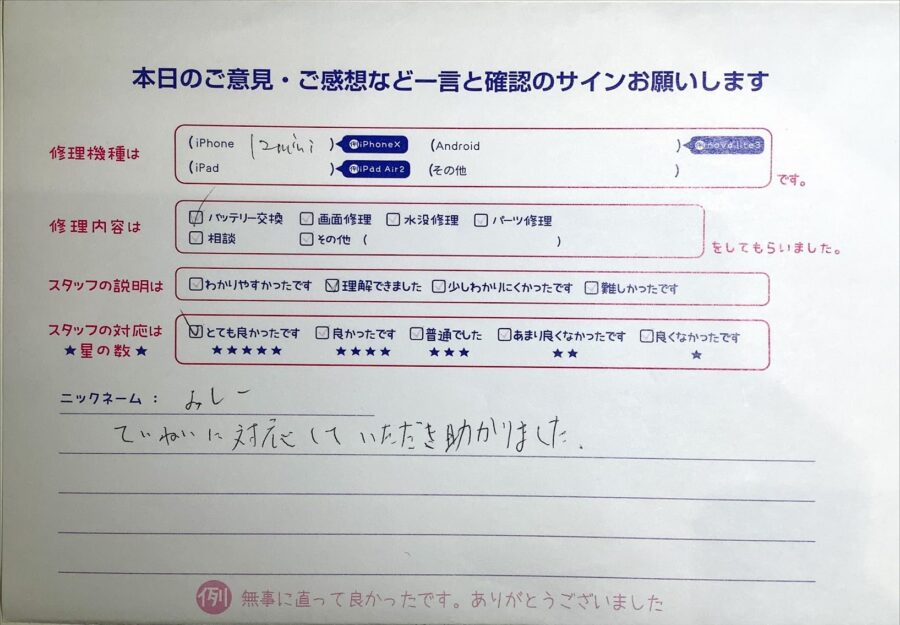 本日のご意見・ご感想など一言と確認のサインお願いします
修理機種は
(iPhone 12mini ) 例iPhoneX (Android ) 例nova lite3
(iPad ) 例iPad Air2 (その他 )
です。
修理内容は
バッテリー交換 画面修理 水没修理 パーツ修理
相談 その他 ( )
をしてもらいました。
スタッフの説明は
わかりやすかったです 理解できました 少しわかりにくかったです 難しかったです
スタッフの対応は
★星の数★
とても良かったです 良かったです 普通でした あまり良くなかったです 良くなかったです
★★★★★ ★★★★ ★★★ ★★ ★
ニックネーム： みしー
ていねいに対応していただき助かりました.
例 無事に直って良かったです。ありがとうございました